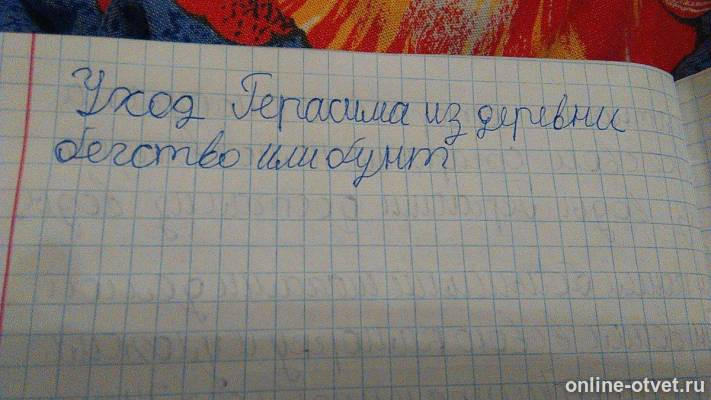 Уход Герасима из деревни
бегство или бунт
online-otvet.ru